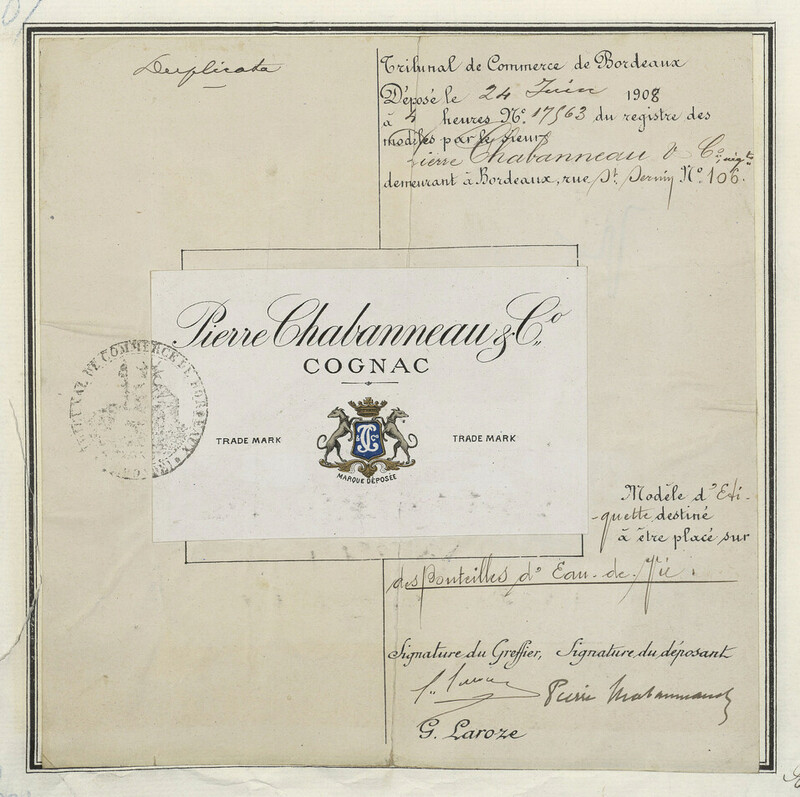 Duplicata
Tribunal de Commerce de Bordeaux
Déposé le 24 Juin 1908
à 4 heures No. 17563 du registre des
modèles par le sieur
Pierre Chabanneau & Co, nigts
demeurant à Bordeaux, rue St. Sernin No. 106.
Pierre Chabanneau & Co
COGNAC
TRIBUNAL DE COMMERCE DE BORDEAUX
TRADE MARK
TRADE MARK
MARQUE DÉPOSÉE
Modèle d'Eti-
-quette destiné
à être placé sur
des bouteilles d'Eau-de-Vie.
Signature du Greffier, Signature du déposant
Pierre Chabanneau
G. Laroze